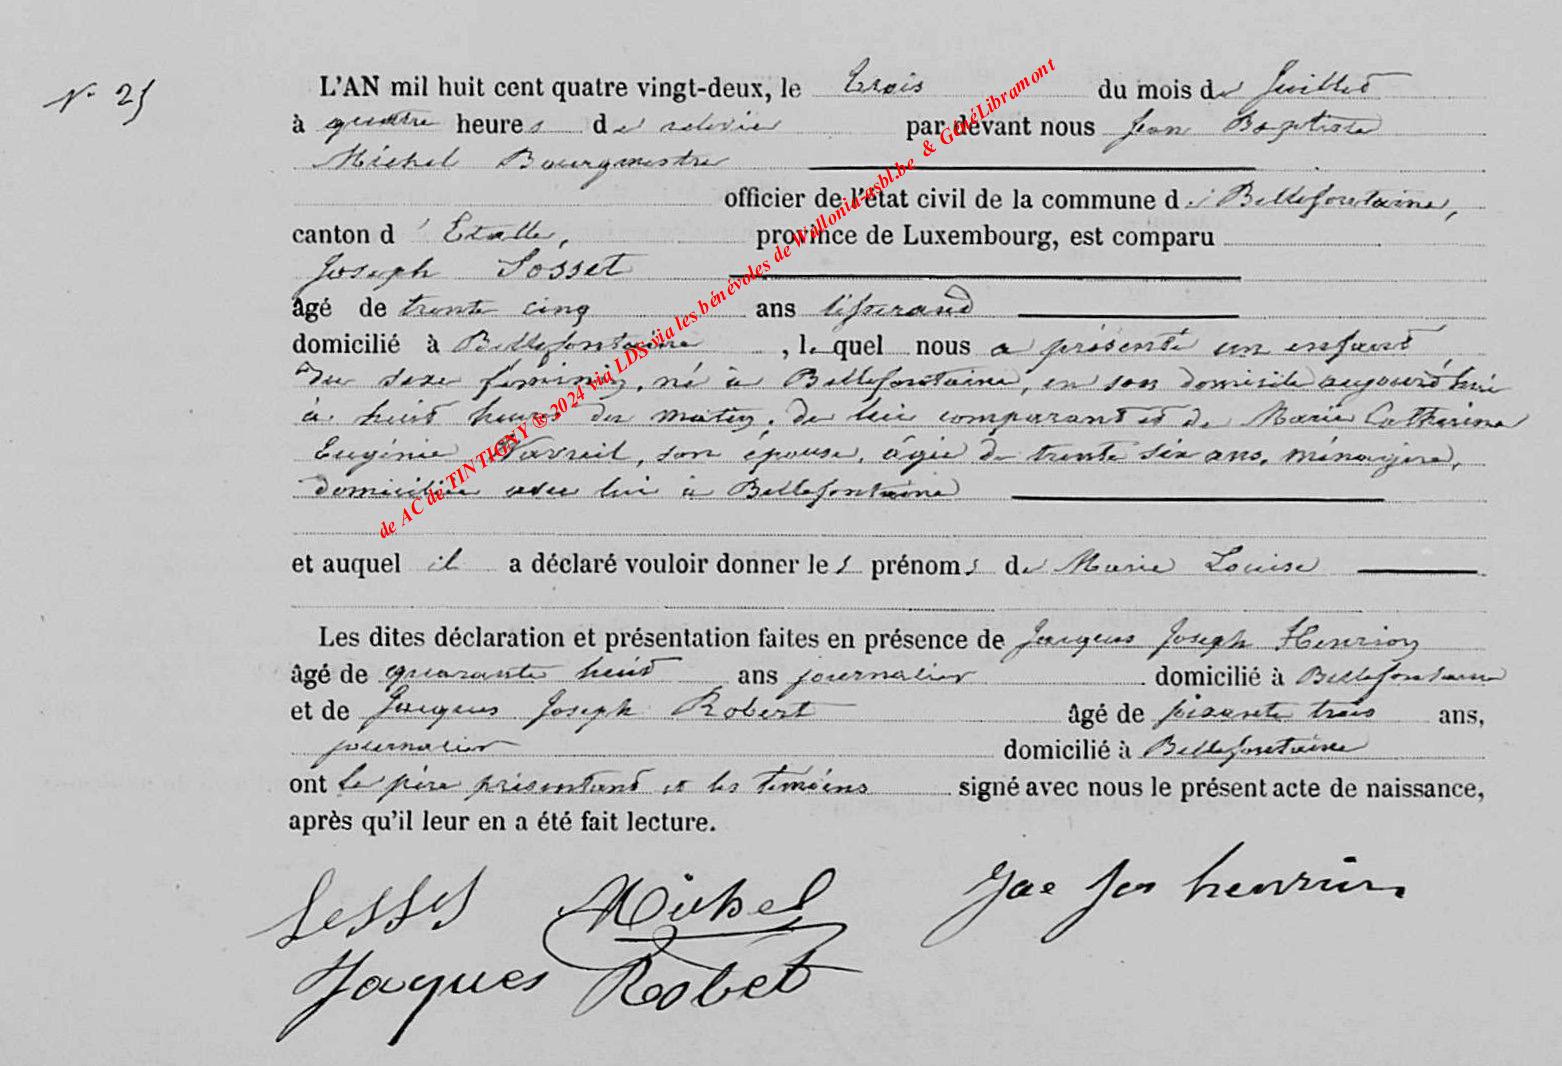 N° 25
L'AN mil huit cent quatre vingt-deux, le trois du mois de Juillet
à quatre heures de relevée par devant nous Jean Baptiste
Michel Bourgmestre
officier de l'état civil de la commune de Bellefontaine,
canton d'Etalle, province de Luxembourg, est comparu
Joseph Sosset
âgé de trente cinq ans tisserand
domicilié à Bellefontaine, lequel nous a présenté un enfant
du sexe féminin, né à Bellefontaine, en son domicile aujourd'hui
à huit heures du matin, de lui comparant et de Marie Catherine
Eugénie son épouse, âgée de trente six ans, ménagère,
domiciliée avec lui à Bellefontaine
et auquel il a déclaré vouloir donner les prénoms de Marie Louise
Les dites déclaration et présentation faites en présence de Jacques Joseph Henrion
âgé de quarante huit ans journalier domicilié à Bellefontaine
et de Jacques Joseph Robert âgé de trois ans,
journalier domicilié à Bellefontaine
ont le père présentant et les témoins signé avec nous le présent acte de naissance,
après qu'il leur en a été fait lecture.
Michel Jae Jos henrion
Jaques Robet
de AC de TINTIGNY ®2024 via LDS via les bénévoles de Wallonia-asbl.be & GénéLibramont